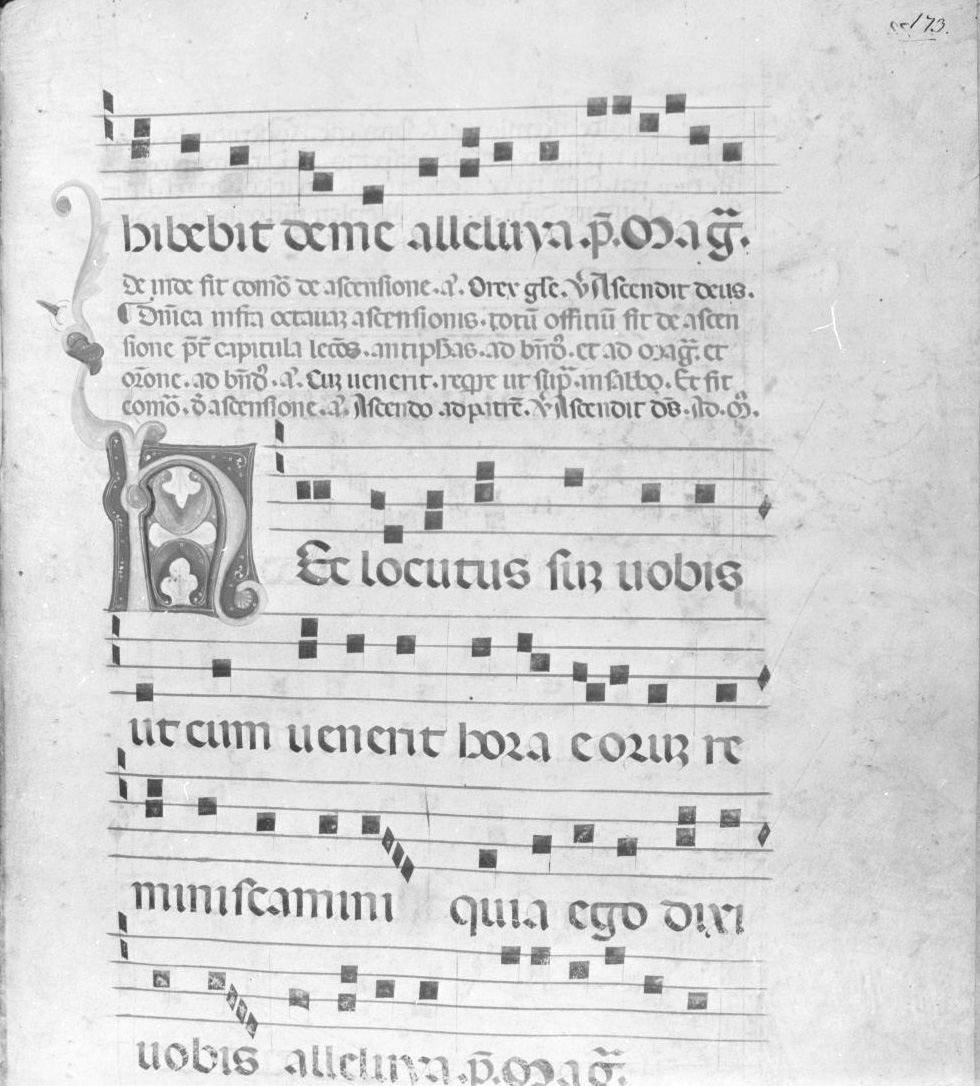 173.
bibebit de me alleluya. p̄. Mag̃.
de inde fit com̄o de ascensione. a'. O rex gl̄e. v̄ Ascendit deus.
Dn̄ica infr̄a octauaʒ ascensionis. totū offitiū fit de ascen
sione p̄t capitula lec̄oes. antiph̄as. ad bn̄dc̄. et ad mag̃. et
or̄one. ad bn̄dc̄. a'. Cuʒ uenerit. reqre ut sup̄. in sabbo. Et fit
com̄o. d̄ ascensione. a'. Ascendo ad patrē. v̄ Ascendit ds̄. Ad. M.
Hec locutus suʒ uobis
ut cum uenerit hora eoruʒ re
miniscamini quia ego dixi
uobis alleluya. p̄. Mag̃.